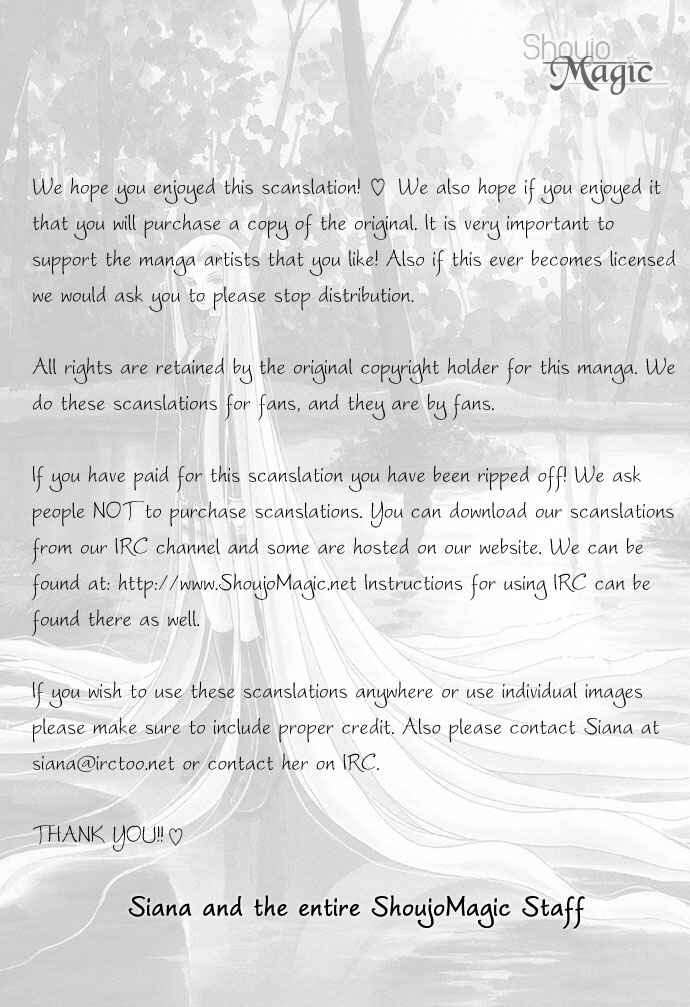 Shoujo
Magic
We hope you enjoyed this scanslation! ♡ We also hope if you enjoyed it
that you will purchase a copy of the original. It is very important to
support the manga artists that you like! Also if this ever becomes licensed
we would ask you to please stop distribution.
All rights are retained by the original copyright holder for this manga. We
do these scanslations for fans, and they are by fans.
If you have paid for this scanslation you have been ripped off! We ask
people NOT to purchase scanslations. You can download our scanslations
from our IRC channel and some are hosted on our website. We can be
found at: http://www.ShoujoMagic.net Instructions for using IRC can be
found there as well.
If you wish to use these scanslations anywhere or use individual images
please make sure to include proper credit. Also please contact Siana at
siana@irctoo.net or contact her on IRC.
THANK YOU!! ♡
Siana and the entire ShoujoMagic Staff